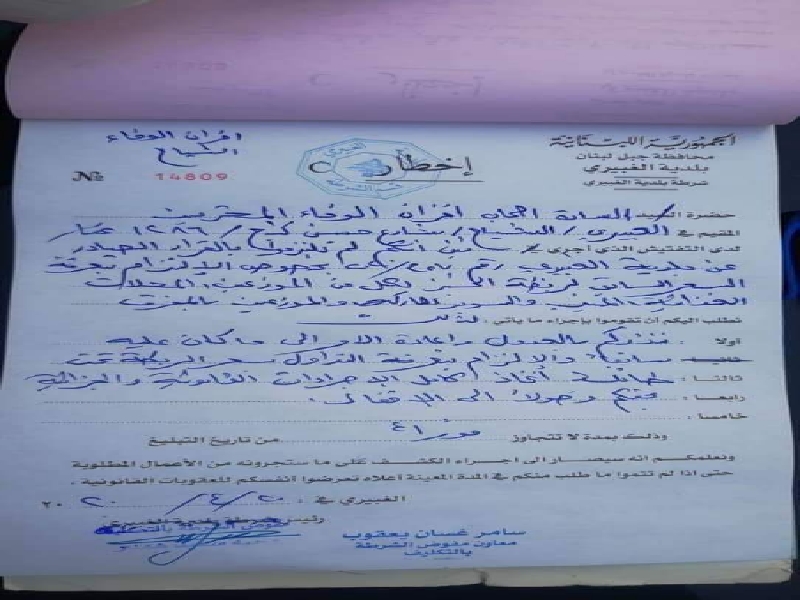 الجمهورية اللبنانية
محافظة جبل لبنان
بلدية الغبيري
شرطة بلدية الغبيري
إخطار
افران الوفاء
الشياح
№ 14809
حضرة السيد السادة اصحاب افران الوفاء المحترمين
المقيم في الغبيري / الشياح / شارع حسن كنج / ١٢٨٦ عقار
لدى التفتيش الذي أجري انكم لم تلتزموا بالقرار الصادر
عن بلدية الغبيري رقم بخصوص الالتزام بتعرفة
السعر لربطة الخبز لكل من الموزعين، المحلات
الغذائية والموزعين بالمفرق
نطلب اليكم أن تقوموا بإجراء ما يأتي :
أولا : العدول واعادة الامر الى ما كان عليه
سابقاً والالتزام بتعرفة سعر الربطة تحت
ثالثا : طائلة أتخاذ كامل الاجراءات القانونية والجزائية
رابعا : بحقكم وصولاً الى الاقفال .
خامسا :
وذلك بمدة لا تتجاوز فوراً من تاريخ التبليغ
ونعلمكم انه سيصار الى اجراء الكشف على ما ستجرونه من الأعمال المطلوبة
حتى اذا لم تتموا ما طلب منكم في المدة المعينة أعلاه تعرضوا انفسكم للعقوبات القانونية .
الغبيري في : ٢٠ / ٤ / ٢٠ ٢٠
رئيس شرطة بلدية الغبيري
سامر غسان يعقوب
معاون مفوض الشرطة
بالتكليف